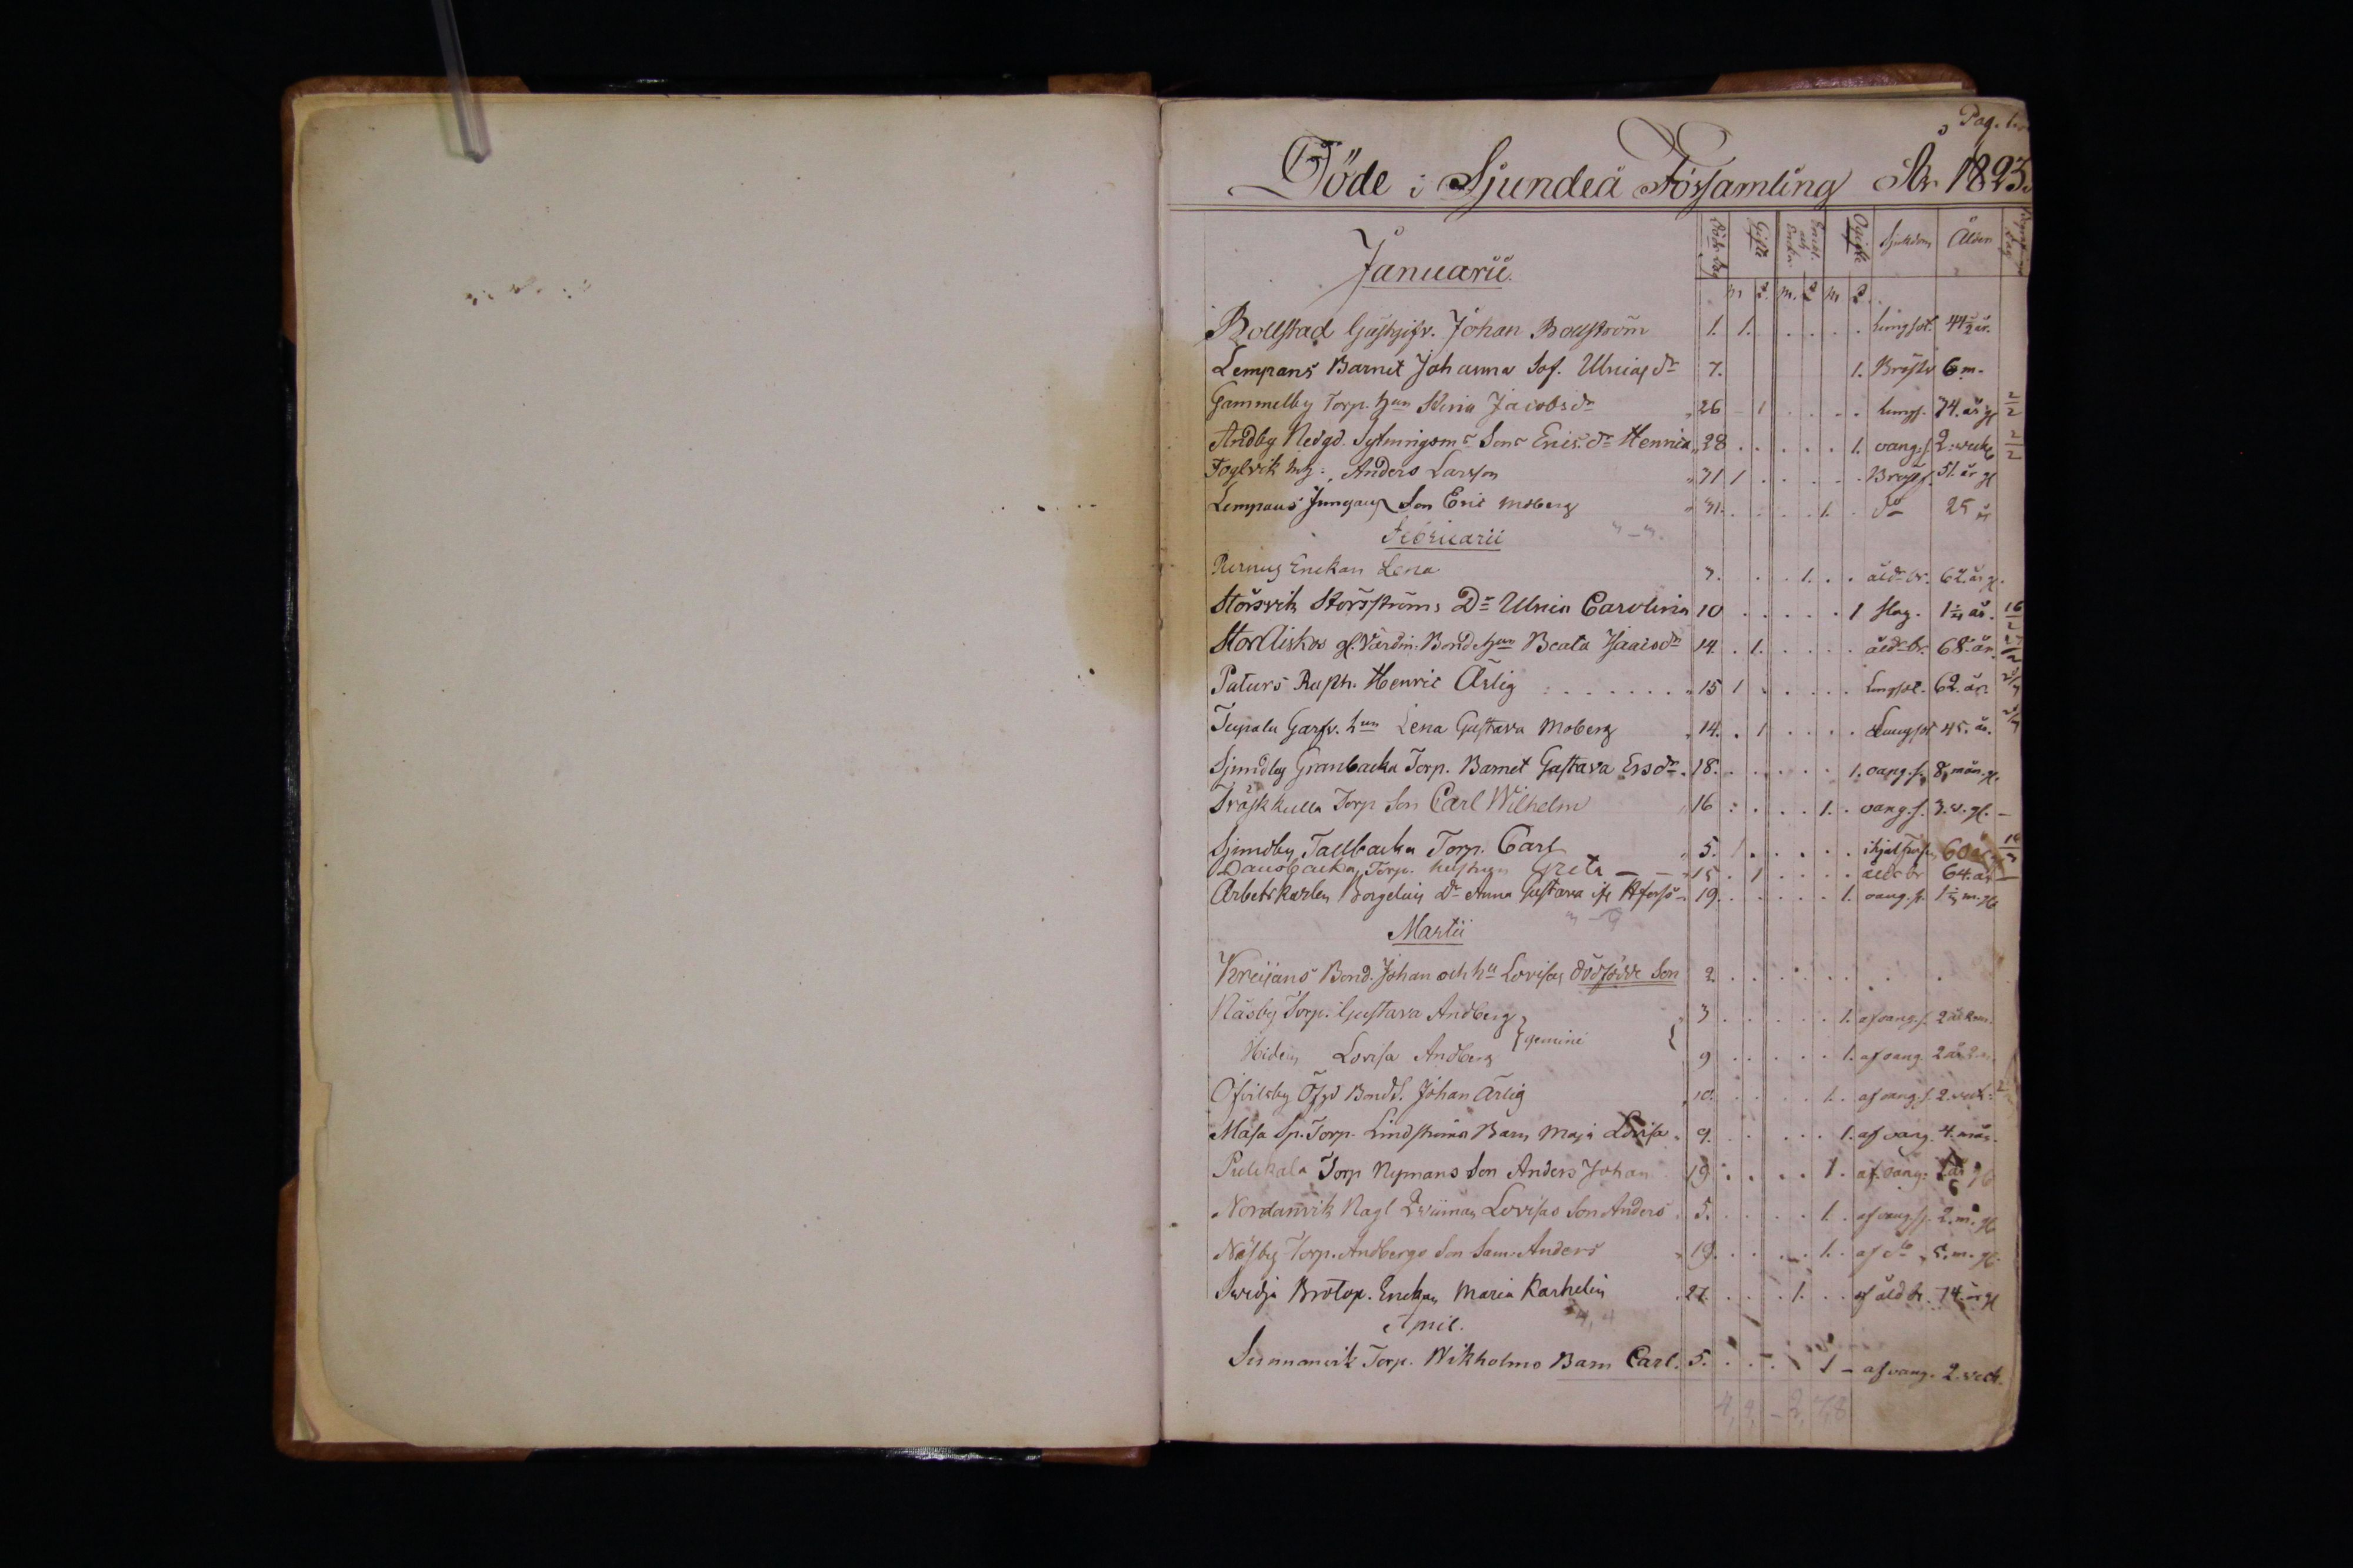 Pag. 1.
Döde i Sjundeå Församling År 1823.
Januarii.
Döds dag Gifte Enkl. och Enkor Ogifte Sjukdom Ålder
m q. m. q m q
Bollstad Gästgifv. Johan Bollström 1. 1. . . . . . lungsot. 44½ år.
Lempans Barnet Johanna Sof. Ulricas dr 7. 1. Bröstv 6 m.
Gammelby Torp. hun Jacobs dr 26 - 1 . . . . lungs. 74. år gl 2/2
Andby Nedgd. Sytningsm s Sons Erics. dr Henrica 28 . . . . . 1. oäng. s. 2. veck 2/2
Foglvik Anders Larsson 31 1 . . . . . Bröst s. 51. år gl
Lempans Son Eric Moberg 31. . . . . 1. . do 25 år
Februarii
Enckan Lena 7. . . . 1. . . åld. br. 62. år gl.
Störsvik Störströms Dr Ulrica Carolina 10 . . . . . 1 slag. 1¼ år. 16/2
gl. Värdin. Bonde hun Beata Isaacs dr 14 . 1. . . . . åld. br. 68. år.
Paturs Henric Ärlig . . . . . . . 15 1 . . . . . Lungsot. 62. år.
Garfv. hun Lena Gustava Moberg 14. . 1 . . . . Lungsot 45. år.
Sjundby Granbacka Torp. Barnet Gustava Ersdr. 18. . . . . . 1. oäng. s. 8. mån. gl.
Träskkulla Torp Son Carl Wilhelm 16 : . . . 1. . oäng. s. 3. v. gl. -
Sjundby Tallbacka Torp. Carl 5. 1 . . . . . 60 år
Torp. hustrun Greta - - 15 . 1 . . . . åld. br 64. år -
Arbetskarlen Borgelin Dr Anna Gustava 19. . . . . . 1. oäng. s. 1½ m. gl
Martii
Kreijans Bond. Johan och hu Lovisas dödfödde Son 2. . . . . . . . .
Näsby Torp. Gustava Andberg } gemini { 3 . . . . . 1. af oäng. s. 2 år
Ibidem Lovisa Andberg 9 . . . . . 1. af oäng. 2 år 2
Öfvitsby Bonds. Johan Ärlig 10. . . . . 1. . af oäng. s. 2. veck.
Masa Sp. Torp. Lindströms Barn Maja Lovisa 9. . . . . . 1. af oäng. 4. mån.
Torp Nymans Son Anders Johan 19 . . . . 1. af. oäng.
Nordanvik Lovisas Son Anders 5. . . . . 1. . af oäng. s. 2. m. gl.
Näsby Torp. Andbergs Son Sam. Anders 19. . . . . 1. . af do 5. m. gl.
Svidja Enckan Maria Karhelin 27. . . . 1. . . af åld br. 74. år gl
April.
Sunnanvik Torp. Wikholms Barn Carl. 5. . . . . 1 - af oäng. 2. veck.
4, 4, - 2, 7, 8